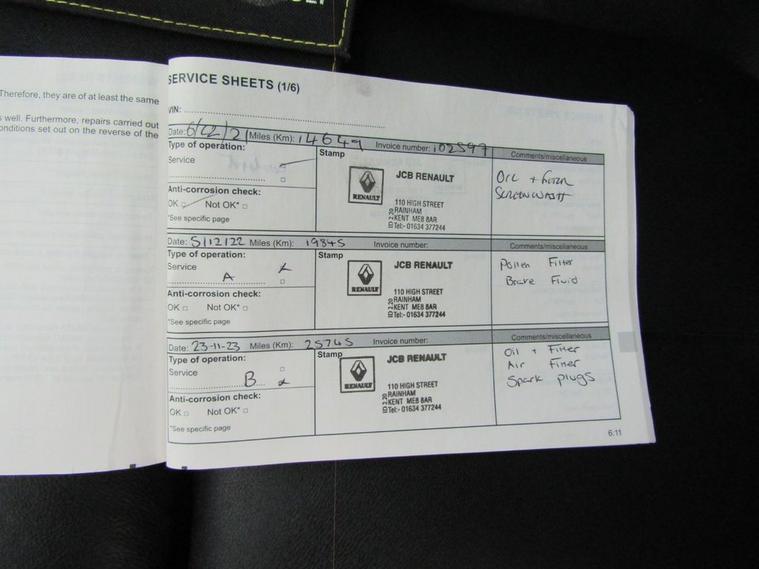 Therefore, they are of at least the same
well. Furthermore, repairs carried out
onditions set out on the reverse of the
SERVICE SHEETS (1/6)
VIN:
Date: 6/12/21 Miles (Km): 14649 Invoice number: 102597 Comments/miscellaneous
Type of operation:
Service
Anti-corrosion check:
OK □ Not OK* □
*See specific page
Stamp
RENAULT
JCB RENAULT
110 HIGH STREET
RAINHAM
KENT ME8 8AR
Tel:- 01634 377244
OIL + FILTER
SCREENWASH
Date: 5/12/22 Miles (Km): 19845 Invoice number: Comments/miscellaneous
Type of operation:
Service
A
Anti-corrosion check:
OK □ Not OK* □
*See specific page
Stamp
RENAULT
JCB RENAULT
110 HIGH STREET
RAINHAM
KENT ME8 8AR
Tel:- 01634 377244
Pollen Filter
Brake Fluid
Date: 23-11-23 Miles (Km): 25745 Invoice number: Comments/miscellaneous
Type of operation:
Service
B
Anti-corrosion check:
OK □ Not OK* □
*See specific page
Stamp
RENAULT
JCB RENAULT
110 HIGH STREET
RAINHAM
KENT ME8 8AR
Tel:- 01634 377244
Oil + Filter
Air Filter
Spark Plugs
6.11